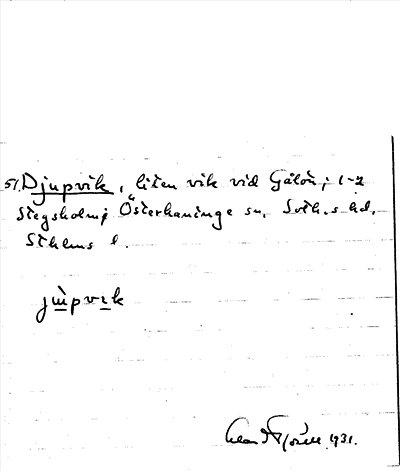 51. Djupvik, liten vik vid Gålön; 1-2
Stegsholm; Österhaninge sn. Soth.s hd.
Sthlms l.
jùpvik
1931.